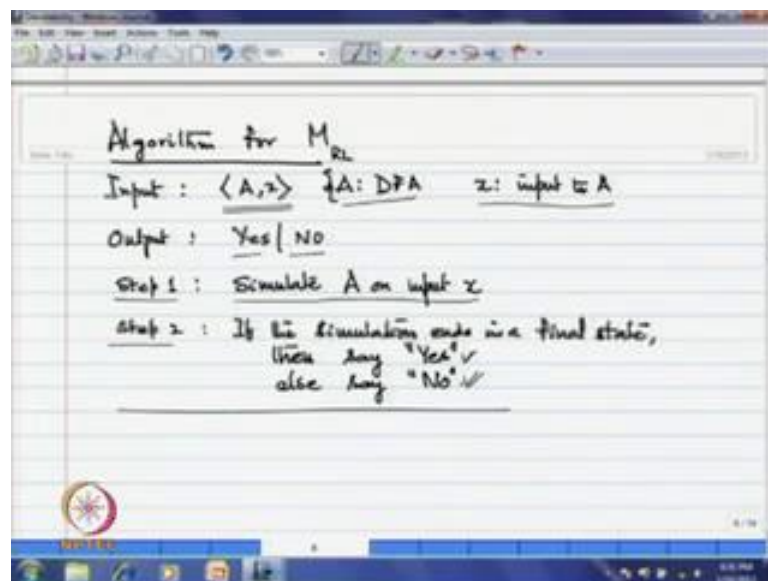 Algorithm for M_RL
Input : ⟨A,x⟩ {A: DFA x: input to A
Output : Yes | NO
Step 1 : Simulate A on input x
Step 2 : If the simulation ends in a final state,
then say "Yes" ✓
else say "No" ✓
NPTEL